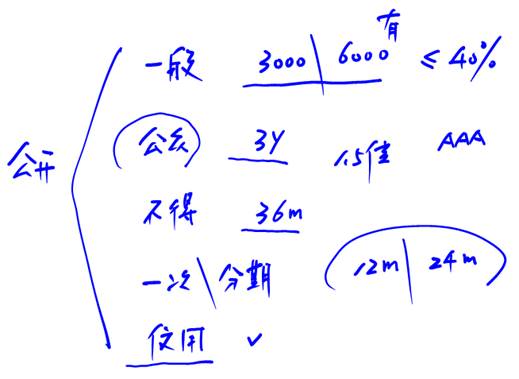 一般 3000 | 6000 有 ≤ 40%
公开
公众 3Y 1.5倍 AAA
不得 36m
一次 \ 分期 12m | 24m
信用 ✓